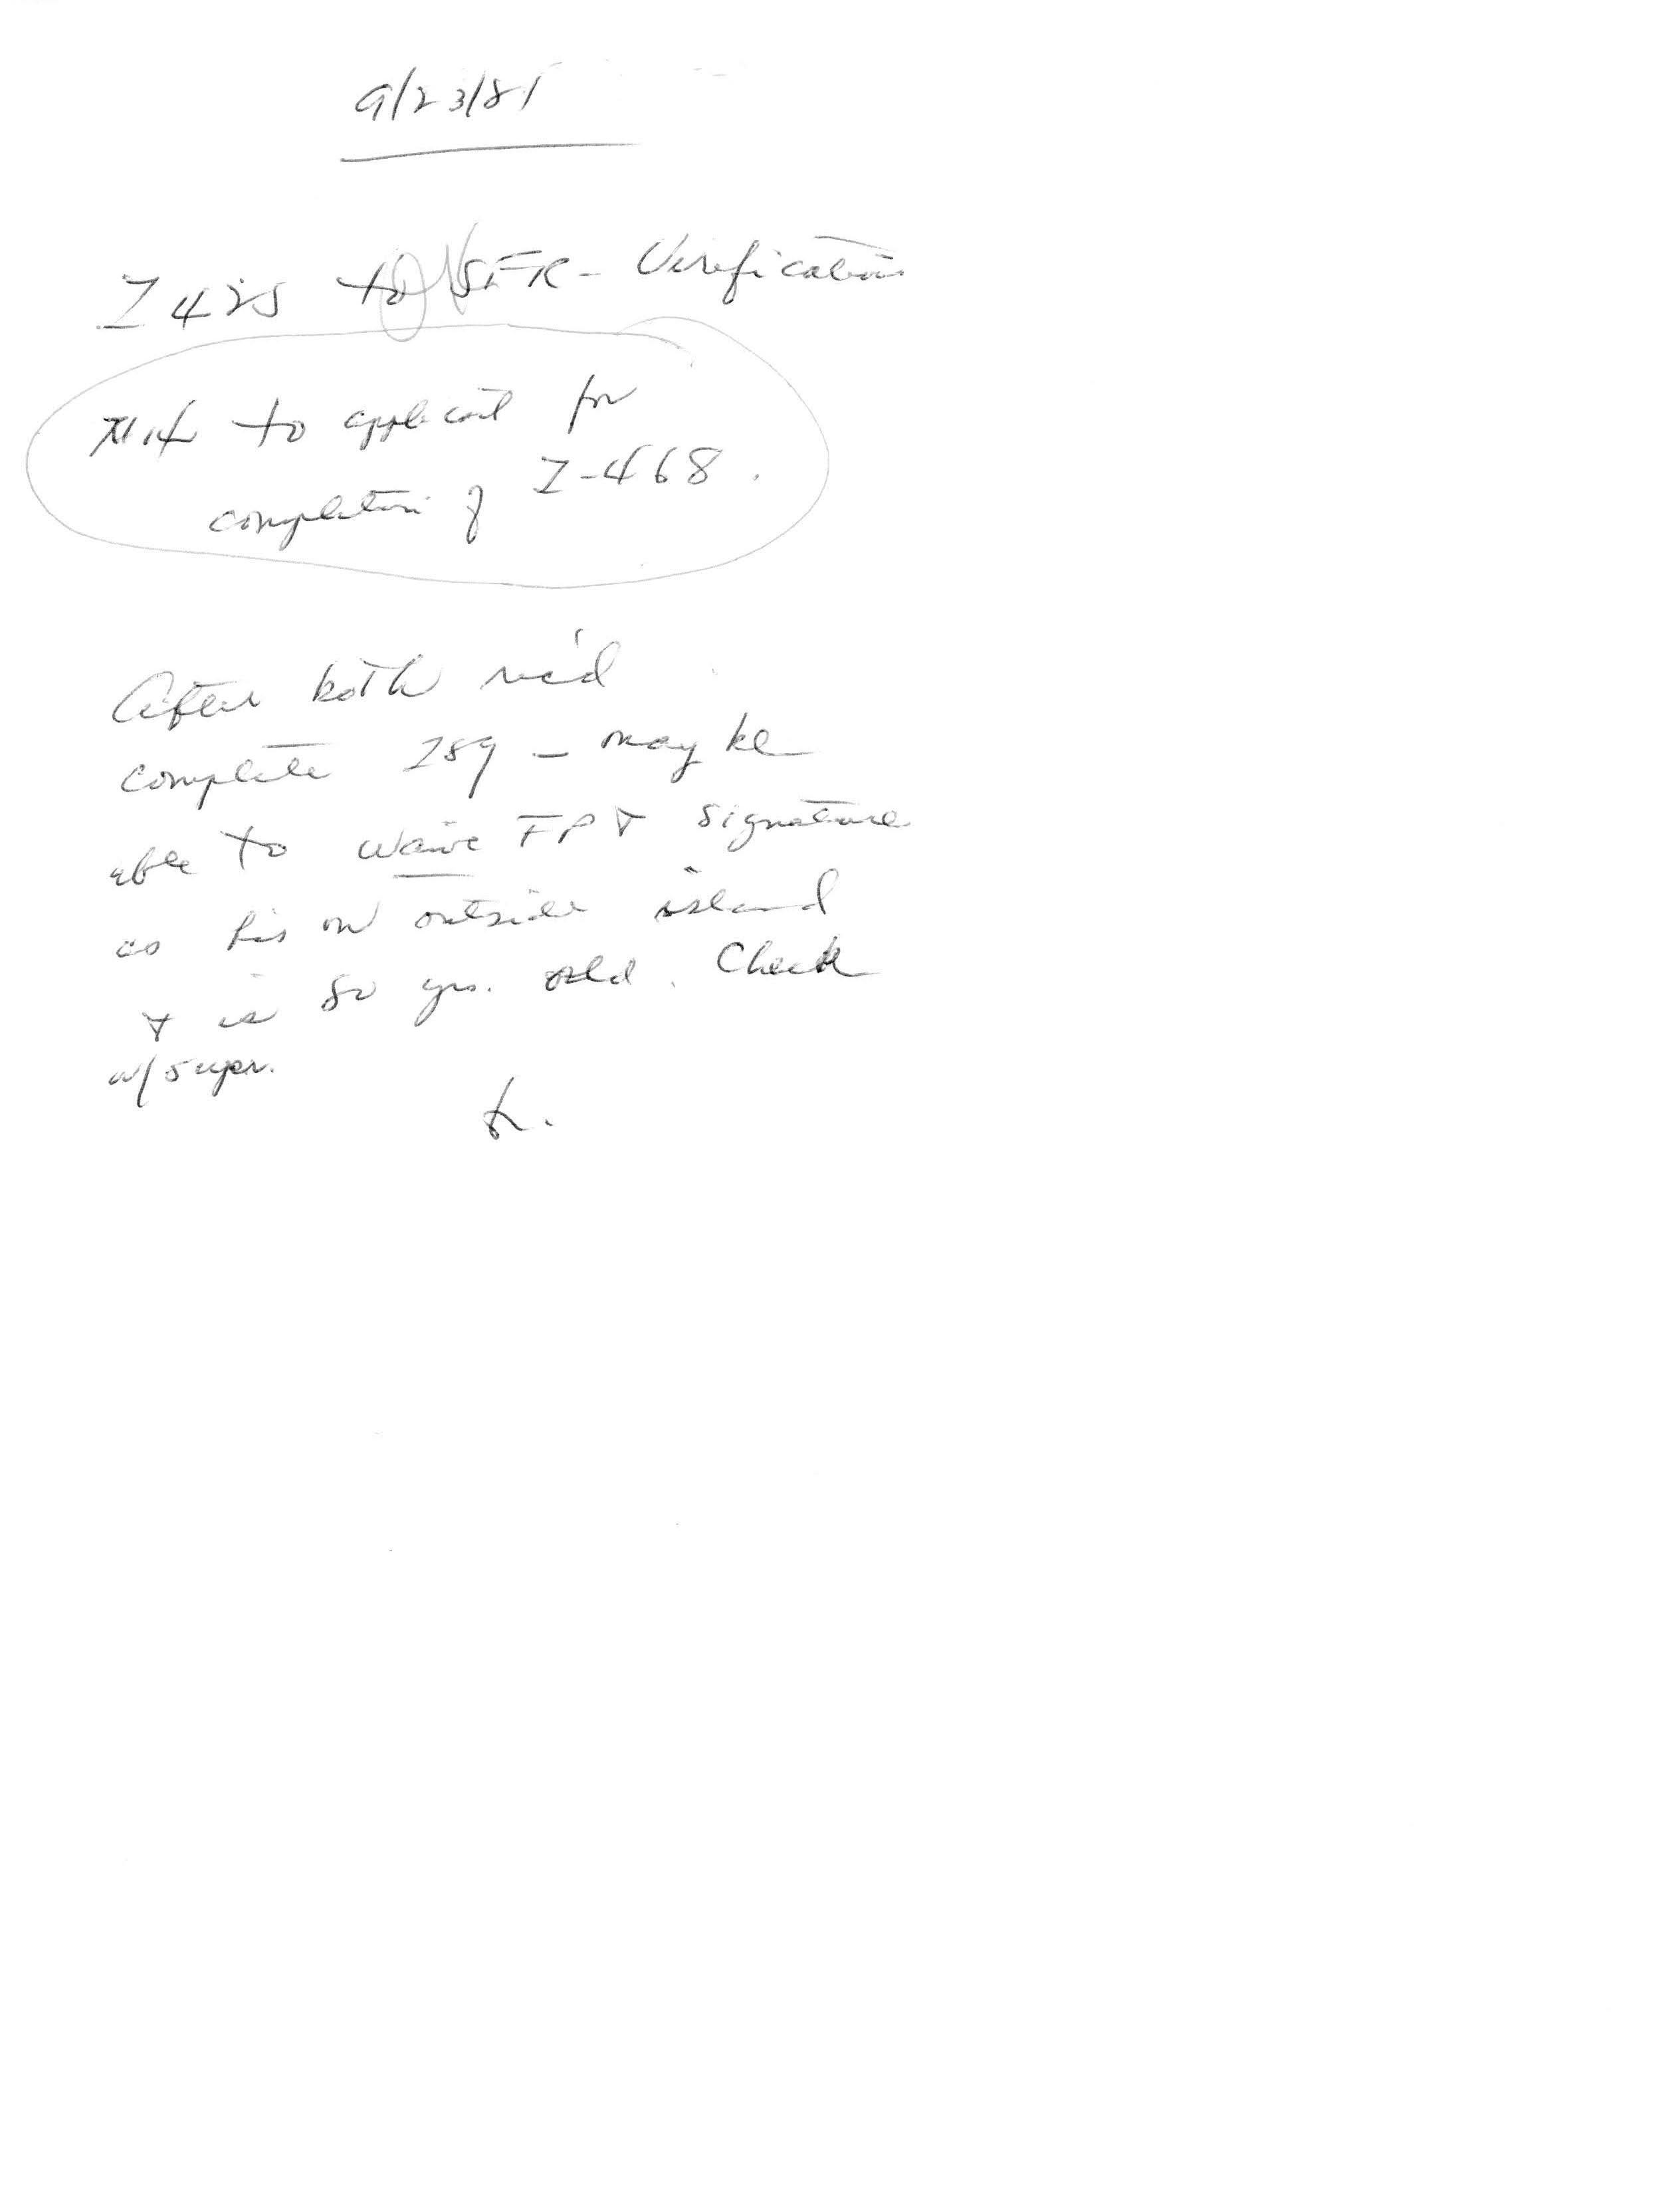 9/23/81
I 425 to SFR - Verification
to applicant for
completion of I-468.
After both rec'd
complete I89 - may be
able to waive FP & signature
as he's on outside island
& is 80 yrs. old. Check
w/ supr.